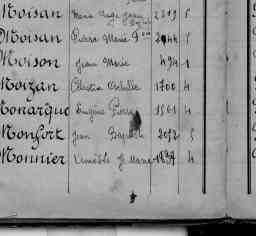 Moisan Marie Ange Jean 2219 5
Moisan Pierre Marie 2044 5
Moison Jean Marie 494 1
Moizan Célestin 1700 4
Monarque Eugène Pierre 1561 4
Monfort Jean Baptiste 2052 5
Monnier Aimable J. Marie 4